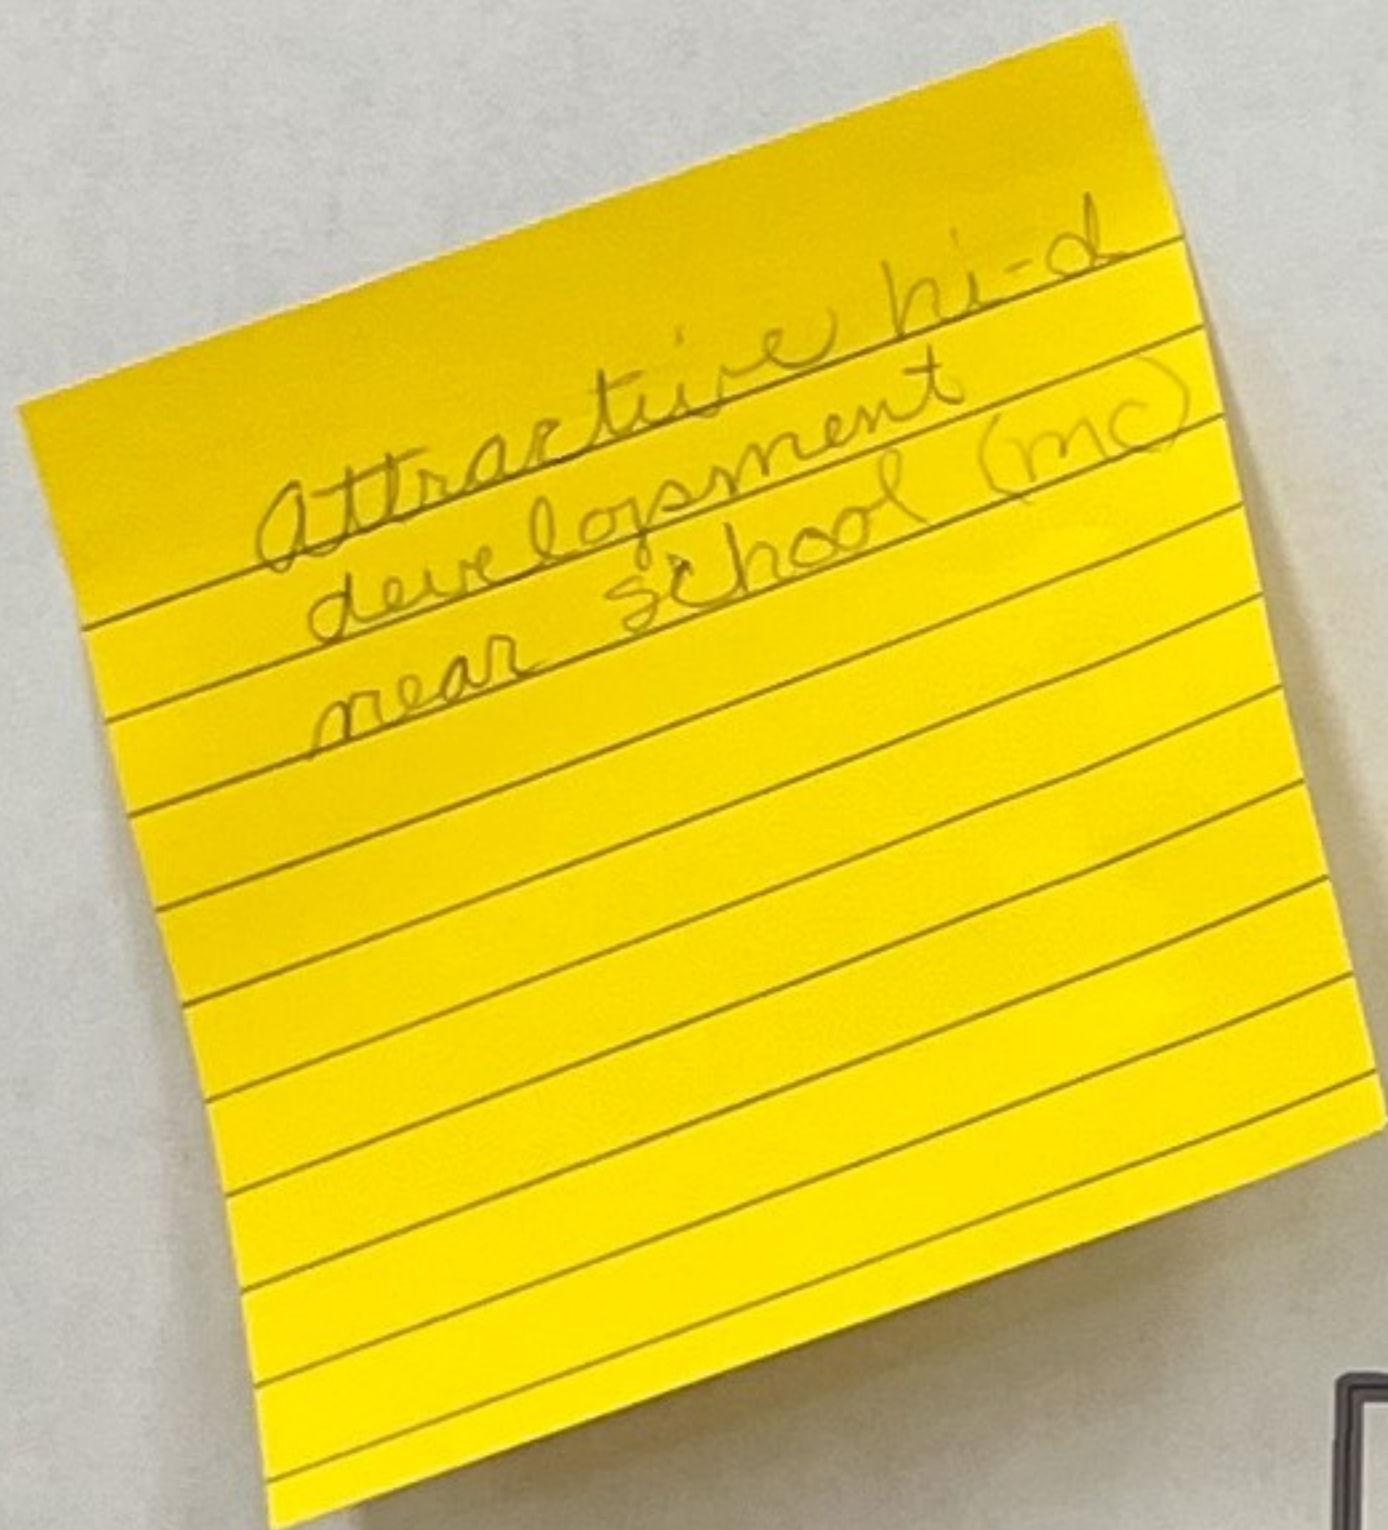 Attractive hi-d
development
near school (mc)